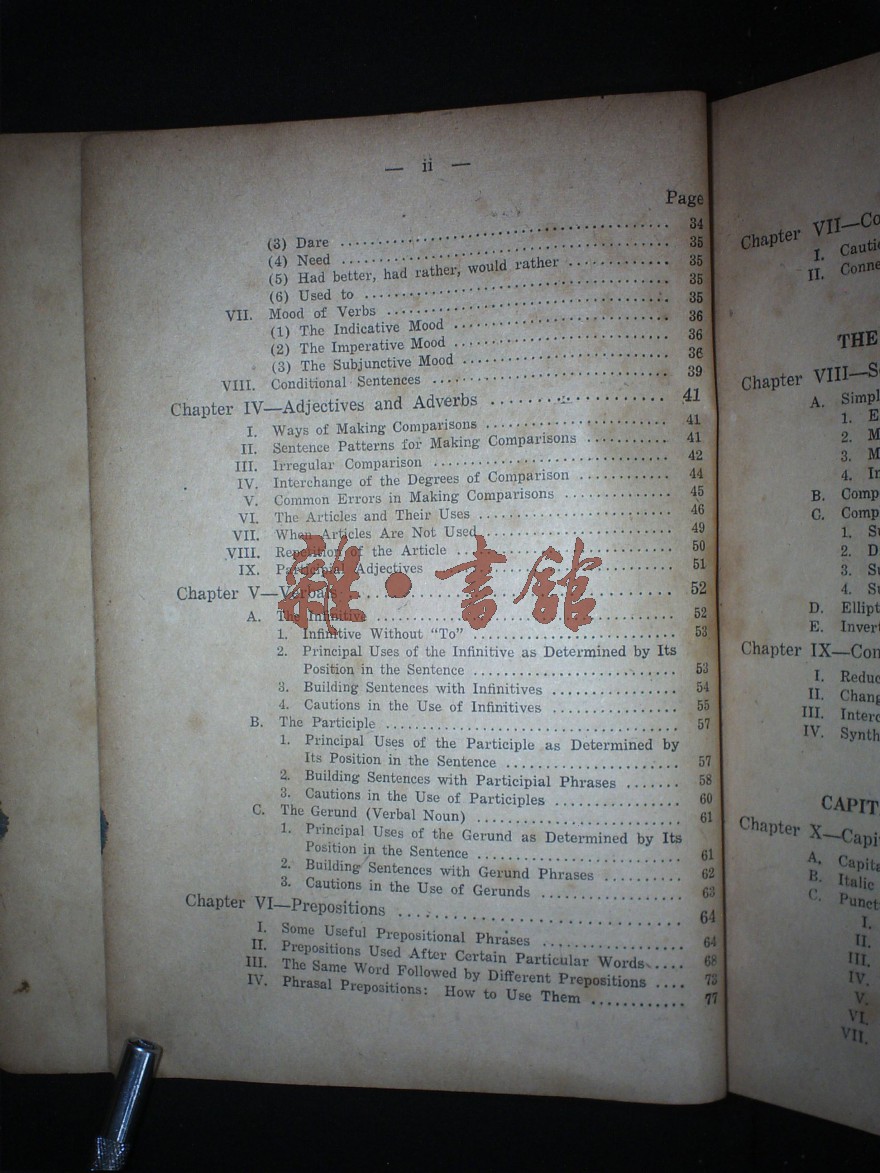 — ii —
Page
(3) Dare ........ 34
(4) Need ........ 35
(5) Had better, had rather, would rather ........ 35
(6) Used to ........ 35
VII. Mood of Verbs ........ 35
(1) The Indicative Mood ........ 36
(2) The Imperative Mood ........ 36
(3) The Subjunctive Mood ........ 36
VIII. Conditional Sentences ........ 39
Chapter IV—Adjectives and Adverbs ........ 41
I. Ways of Making Comparisons ........ 41
II. Sentence Patterns for Making Comparisons ........ 41
III. Irregular Comparison ........ 42
IV. Interchange of the Degrees of Comparison ........ 44
V. Common Errors in Making Comparisons ........ 45
VI. The Articles and Their Uses ........ 46
VII. When Articles Are Not Used ........ 49
VIII. Repetition of the Article ........ 50
IX. Participial Adjectives ........ 51
Chapter V—Verbals ........ 52
A. The Infinitive ........ 52
1. Infinitive Without “To” ........ 53
2. Principal Uses of the Infinitive as Determined by Its
Position in the Sentence ........ 53
3. Building Sentences with Infinitives ........ 54
4. Cautions in the Use of Infinitives ........ 55
B. The Participle ........ 57
1. Principal Uses of the Participle as Determined by
Its Position in the Sentence ........ 57
2. Building Sentences with Participial Phrases ........ 58
3. Cautions in the Use of Participles ........ 60
C. The Gerund (Verbal Noun) ........ 61
1. Principal Uses of the Gerund as Determined by Its
Position in the Sentence ........ 61
2. Building Sentences with Gerund Phrases ........ 62
3. Cautions in the Use of Gerunds ........ 63
Chapter VI—Prepositions ........ 64
I. Some Useful Prepositional Phrases ........ 64
II. Prepositions Used After Certain Particular Words ........ 68
III. The Same Word Followed by Different Prepositions ........ 73
IV. Phrasal Prepositions: How to Use Them ........ 77
雜·書館
Chapter VII—Co
I. Cauti
II. Conne
THE
Chapter VIII—S
A. Simpl
1. E
2. M
3. M
4. In
B. Comp
C. Comp
1. Su
2. D
3. Su
4. Su
D. Ellipt
E. Invert
Chapter IX—Con
I. Reduc
II. Chang
III. Interc
IV. Synth
CAPIT
Chapter X—Capi
A. Capita
B. Italic
C. Punct
I.
II.
III.
IV.
V.
VI.
VII.